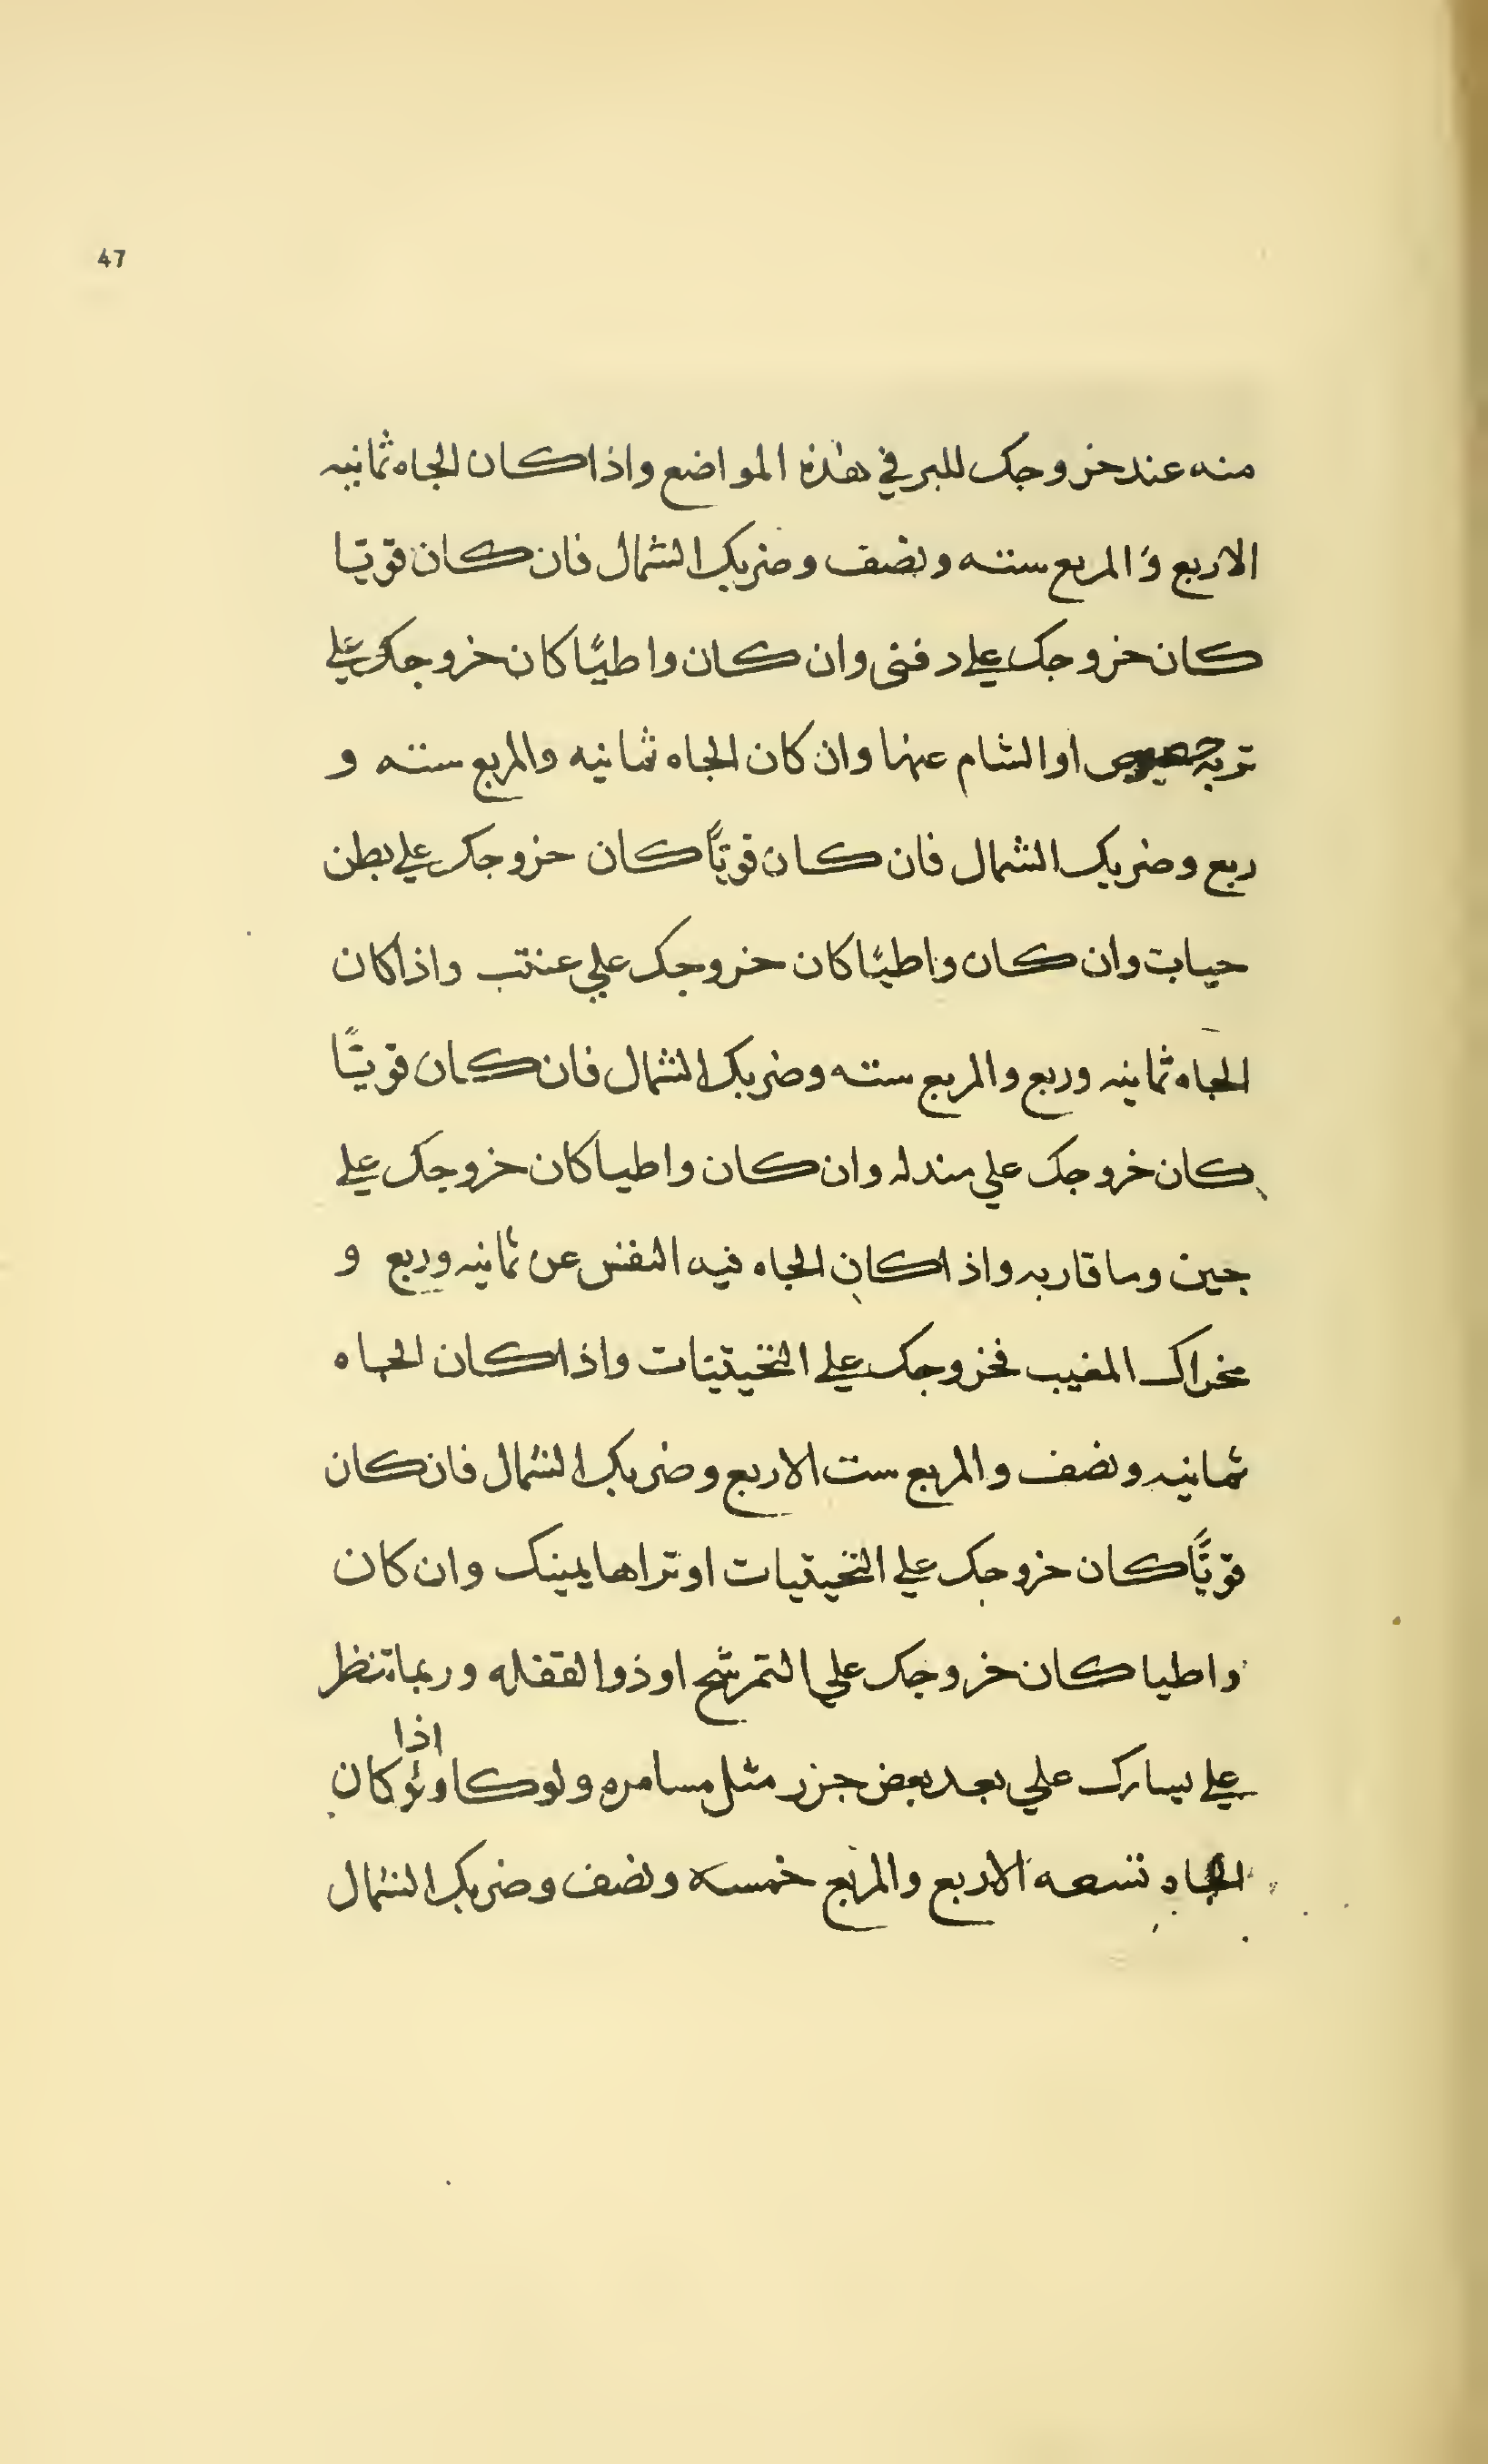 47
منه عند خروجك للبر في هذه المواضع واذا كان الجاه ثمانيه
الاربع والمربع سته ونصف وضربك الشمال فان كان قويا
كان خروجك علي دفنى وان كان واطيًا كان خروجك علي
تربه او الشام عنها وان كان الجاه ثمانيه والمربع سته و
ربع وضربك الشمال فان كان قويًا كان خروجك علي بطن
حيابت وان كان واطيًا كان خروجك علي عنتب واذا كان
الجاه ثمانيه وربع والمربع سته وضربك الشمال فان كان قويًا
كان خروجك علي مندله وان كان واطيا كان خروجك علي
جين وما قاربه واذا كان الجاه فيه النفس عن ثمانيه وربع و
مخراك المغيب فخروجك علي التخيتيات واذا كان الجاه
ثمانيه ونصف والمربع ست الاربع وضربك الشمال فان كان
قويًا كان خروجك علي التخيتيات او تراها يمينك وان كان
واطيا كان خروجك علي التمرشح او ذوا لققله وربما تنظر
علي يسارك علي بعد بعض جزر مثل مسامره ولوكا ولو كان
اذا
الجاه تسعه الاربع والمربع خمسه ونصف وضربك الشمال